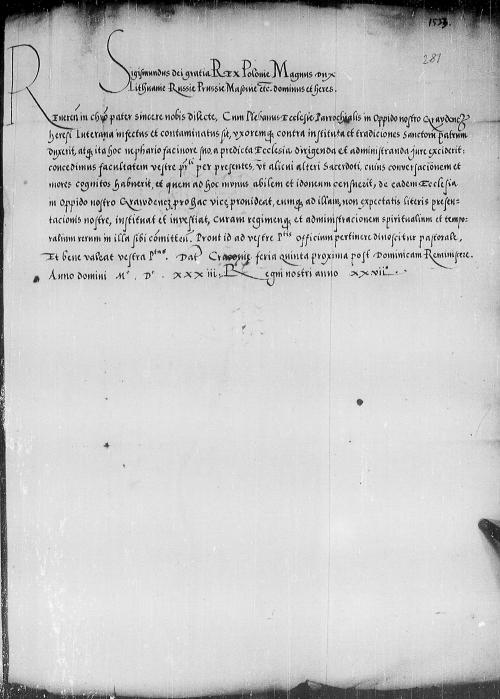 1533.
281
Sigismundus dei gratia Rex Polonie Magnus Dux
Lithuanie Russie Prussie Masouie etc. dominus et heres.
Reueren in christo pater sincere nobis dilecte, Cum Plebanus Ecclesie Parrochialis in Oppido nostro Graudencz
heresi Luterana infectus et contaminatus sit, vxoremque contra instituta et tradiciones sanctorum patrum
duxerit, atque ita hoc nephario facinore suo a predicta Ecclesia dirigenda et administranda jure exciderit:
concedimus facultatem vestre pti per presentes, vt alicui alteri Sacerdoti, cuius conuersacionem et
mores cognitos habuerit, et quem ad hoc munus abilem et idoneum censuerit, de eadem Ecclesia
in oppido nostro Graudencz pro hac vice prouideat, eumque ad illam, non expectatis literis presen-
tacionis nostre, instituat et inuestiat, curam regimenque et administracionem spiritualium et tempo-
ralium rerum in illa sibi committens. Prout id ad vestre ptis officium pertinere dinoscitur pastorale,
Et bene valeat vestra ptas. Dat Cracouie feria quinta proxima post Dominicam Reminiscere.
Anno domini Mo. Do. xxxiii. Regni nostri anno xxvii.